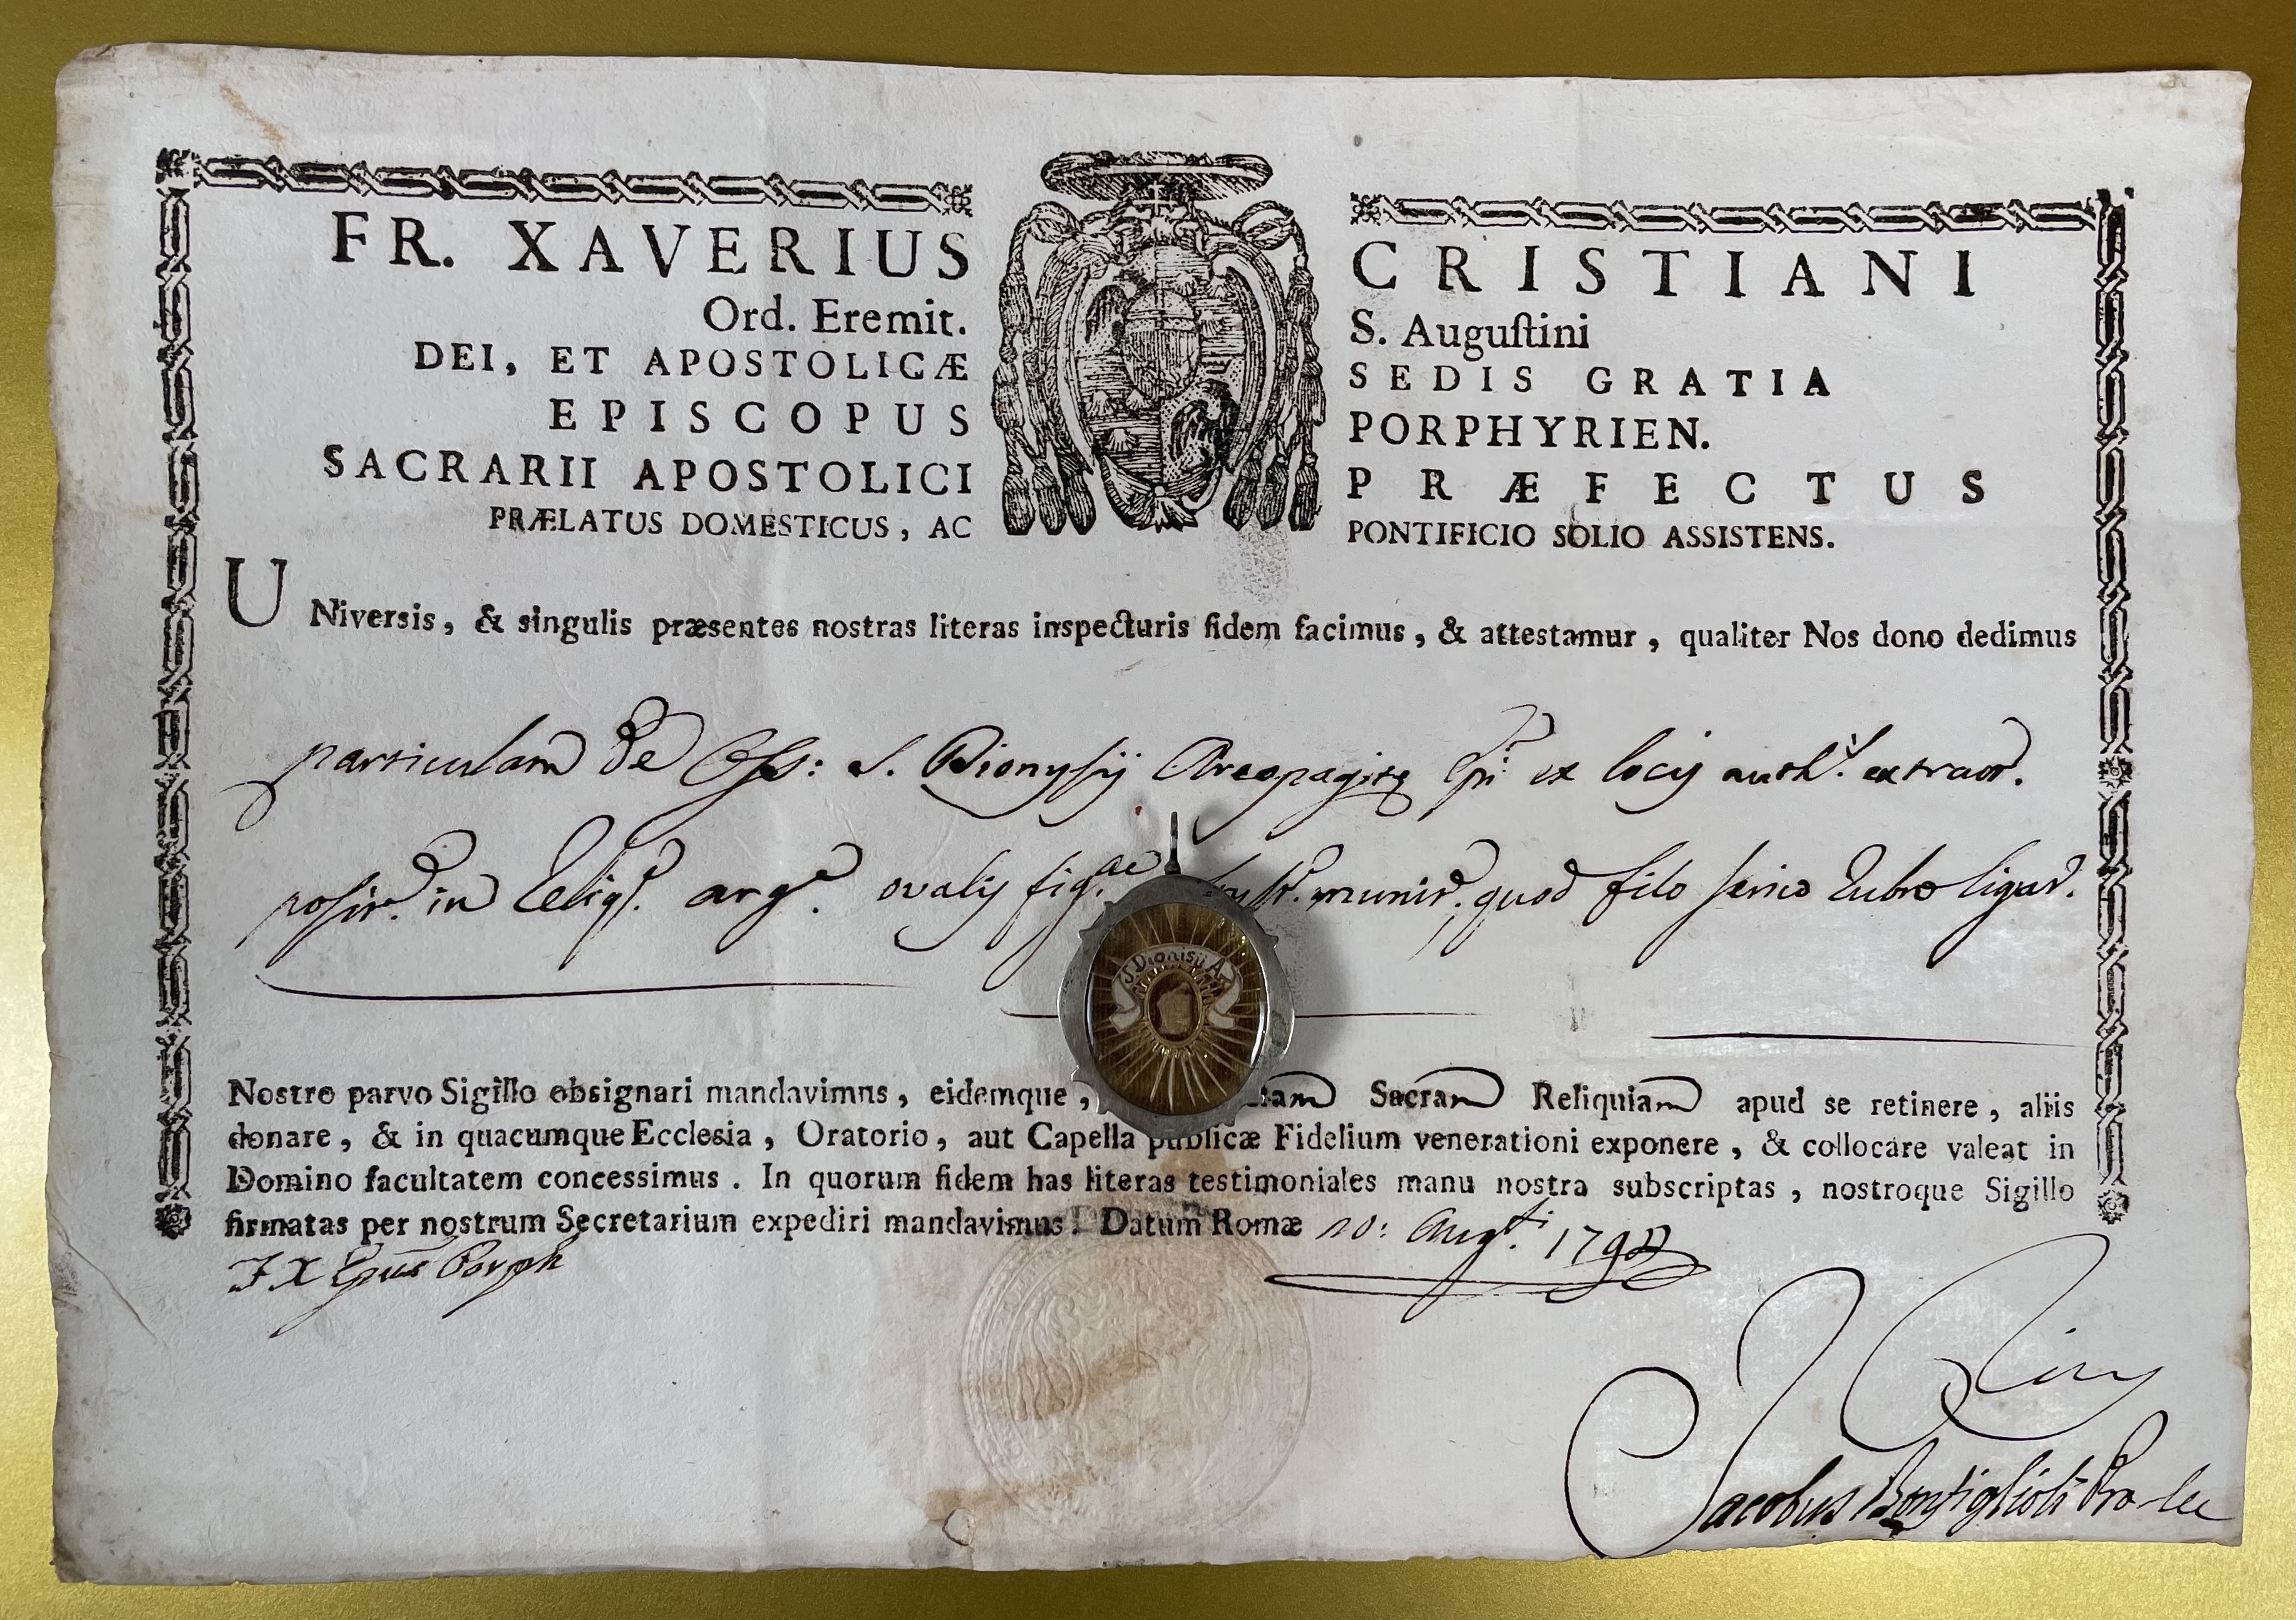 FR. XAVERIUS CRISTIANI
Ord. Eremit. S. Auguſtini
DEI, ET APOSTOLICÆ SEDIS GRATIA
EPISCOPUS PORPHYRIEN.
SACRARII APOSTOLICI PRÆFECTUS
PRÆLATUS DOMESTICUS, AC PONTIFICIO SOLIO ASSISTENS.
UNiversis, & singulis præsentes nostras literas inspecturis fidem facimus, & attestamur, qualiter Nos dono dedimus
particulam de Oss: S. Dionysij Areopagitę Epi ex locis auth. extract.
posit. in Reliq. arg. ovalis fig.ae munit. quod filo serico rubro ligat.
S Dionisii A.
Nostro parvo Sigillo obsignari mandavimus, eidemque, Sacram Reliquiam apud se retinere, aliis
donare, & in quacumque Ecclesia, Oratorio, aut Capella publicæ Fidelium venerationi exponere, & collocare valeat in
Domino facultatem concessimus. In quorum fidem has literas testimoniales manu nostra subscriptas, nostroque Sigillo
firmatas per nostrum Secretarium expediri mandavimus. Datum Romæ 10: Aug.ti
F X Epus Porph
Jacobus Bontiglioli Pro-